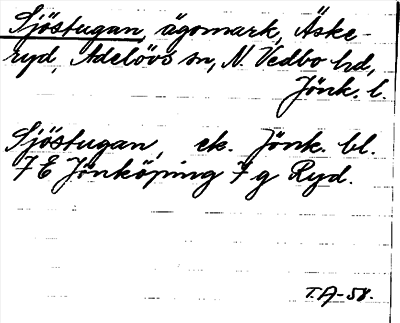 Sjöstugan, ägomark, Äske-
ryd, Adelövs sn, N. Vedbo hd,
Jönk. l.
Sjöstugan, ek. Jönk. bl.
7 E Jönköping 7 g Ryd.
T.A-58.